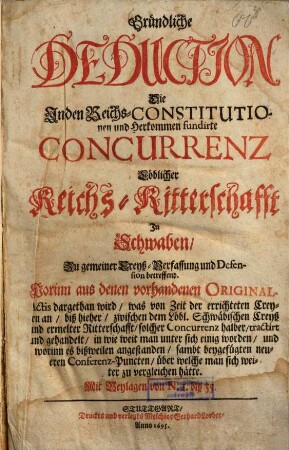 Gründliche
DEDUCTION
Die
In den Reichs-CONSTITUTIO-
nen und Herkommen fundirte
CONCURRENZ
Löblicher
Reichs-Ritterschafft
In
Schwaben/
Zu gemeiner Creyß-Verfassung und Defen-
sion betreffend.
Worinn aus denen vorhandenen ORIGINAL-
Actis dargethan wird / was von Zeit der errichteten Crey-
sen an / biß hieher / zwischen dem Löbl. Schwäbischen Creyß
und ermelter Ritterschafft / solcher Concurrenz halber / tractirt
und gehandelt / in wie weit man unter sich einig worden / und
worinn es bißweilen angestanden / sambt beygefügten neu-
eren Conferenz-Puncten / über welche man sich wei-
ter zu vergleichen hätte.
Mit Beylagen von N. 1. biß 33.
STUTTGART,
Druckts und verlegts Melchior Gerhard Lorber,
Anno 1695.